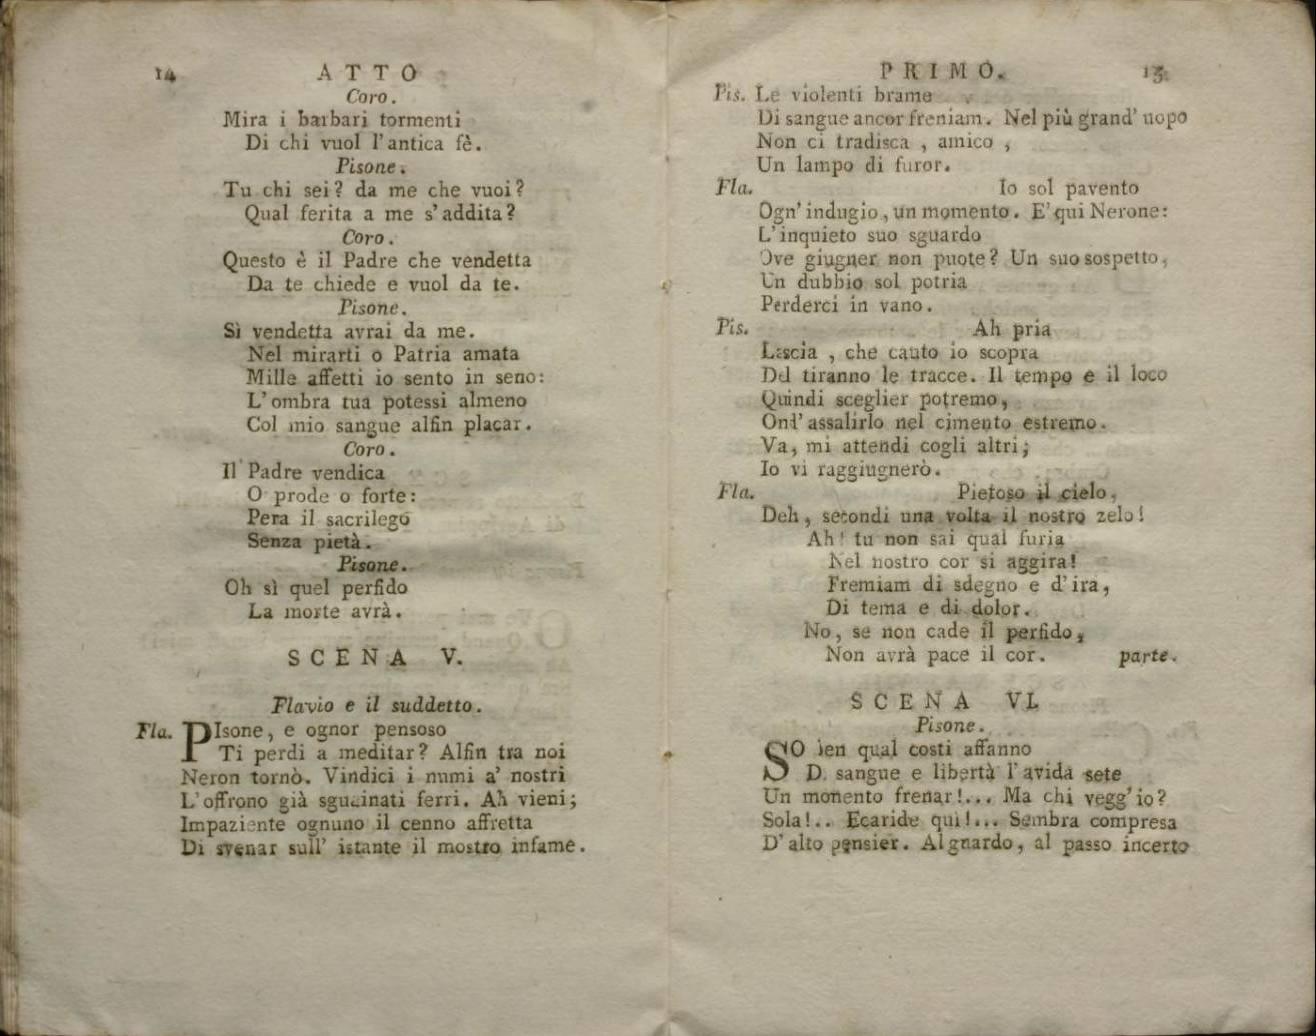 14 ATTO
Coro.
Mira i barbari tormenti
Di chi vuol l'antica fè.
Pisone.
Tu chi sei? da me che vuoi?
Qual ferita a me s'addita?
Coro.
Questo è il Padre che vendetta
Da te chiede e vuol da te.
Pisone.
Sì vendetta avrai da me.
Nel mirarti o Patria amata
Mille affetti io sento in seno:
L'ombra tua potessi almeno
Col mio sangue alfin placar.
Coro.
Il Padre vendica
O prode o forte:
Pera il sacrilego
Senza pietà.
Pisone.
Oh sì quel perfido
La morte avrà.
SCENA V.
Flavio e il suddetto.
Fla. PIsone, e ognor pensoso
Ti perdi a meditar? Alfin tra noi
Neron tornò. Vindici i numi a' nostri
L'offrono già sguainati ferri. Ah vieni;
Impaziente ognuno il cenno affretta
Di svenar sull' istante il mostro infame.
PRIMO. 15
Pis. Le violenti brame
Di sangue ancor freniam. Nel più grand' uopo
Non ci tradisca, amico,
Un lampo di furor.
Fla. Io sol pavento
Ogn' indugio, un momento. E' qui Nerone:
L'inquieto suo sguardo
Ove giugner non puote? Un suo sospetto,
Un dubbio sol potria
Perderci in vano.
Pis. Ah pria
Lascia, che cauto io scopra
Del tiranno le tracce. Il tempo e il loco
Quindi sceglier potremo,
Ond' assalirlo nel cimento estremo.
Va, mi attendi cogli altri;
Io vi raggiugnerò.
Fla. Pietoso il cielo,
Deh, secondi una volta il nostro zelo!
Ah! tu non sai qual furia
Nel nostro cor si aggira!
Fremiam di sdegno e d'ira,
Di tema e di dolor.
No, se non cade il perfido,
Non avrà pace il cor. parte.
SCENA VI.
Pisone.
SO ien qual costi affanno
D. sangue e libertà l'avida sete
Un momento frenar!... Ma chi vegg'io?
Sola!.. Ecaride qui!... Sembra compresa
D'alto pensier. Al guardo, al passo incerto